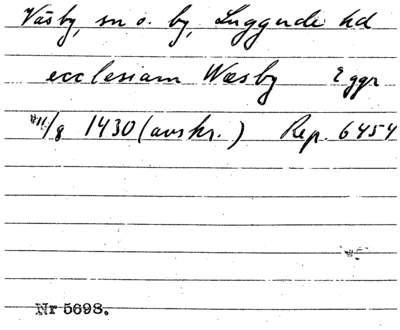 Väsby, sn o. by, Luggude hd
ecclesiam Wæsby
11/8 1430 (avskr.) Rep. 6454
Nr 5698.